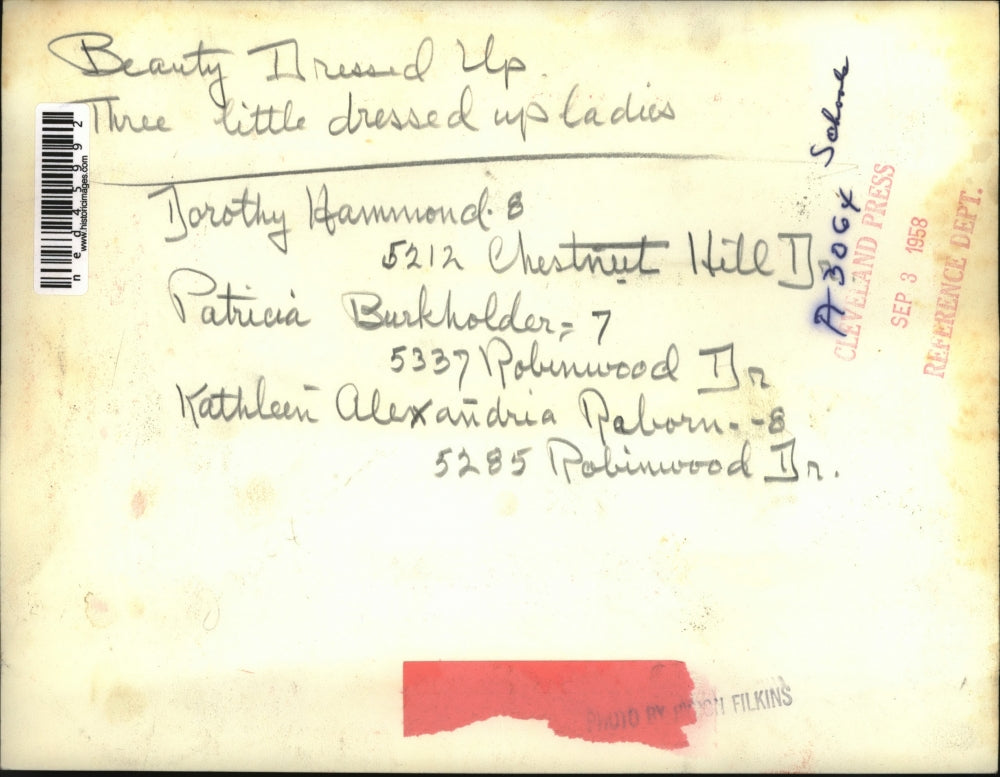 Beauty Dressed Up.
Three little dressed up ladies
Dorothy Hammond. 8
5212 Chestnut Hill D
Patricia Burkholder, 7
5337 Robinwood Dr
Kathleen Alexandria Raborn. -8
5285 Robinwood Dr.
ned45992
www.historicimages.com
A3064 Schools
CLEVELAND PRESS
SEP 3 1958
REFERENCE DEPT.
PHOTO BY FILKINS